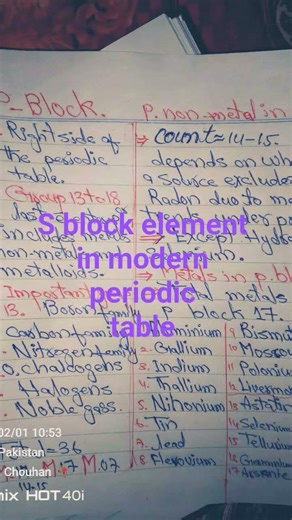 P-Block.
Right side of
the periodic
table.
Group 13 to 18
includes metals
non-metals
metalloids.
Important
13. Boron family
Carbon family
Nitrogen family
Chalcogens
Halogens
Noble gass.
-36
M.17 M.07
14-15
P. non-metal in
⇒ count≈14-15.
depends on wh
a source excludes
Radon due to
⇒ Except Hydro
⇒ Metals in p. b
metals
P block 17.
Aluminium
2. Gallium
3. Indium
4. Thallium
5. Nihonium
6. Tin
7. Lead
8. Flerovium
9 Bismut
10 Moscov
11 Polonium
12 Livermo
14 Selenium
15 Tellurium
S block element
in modern
periodic
table
02/01 10:53
Pakistan
Chouhan
nix HOT 40i